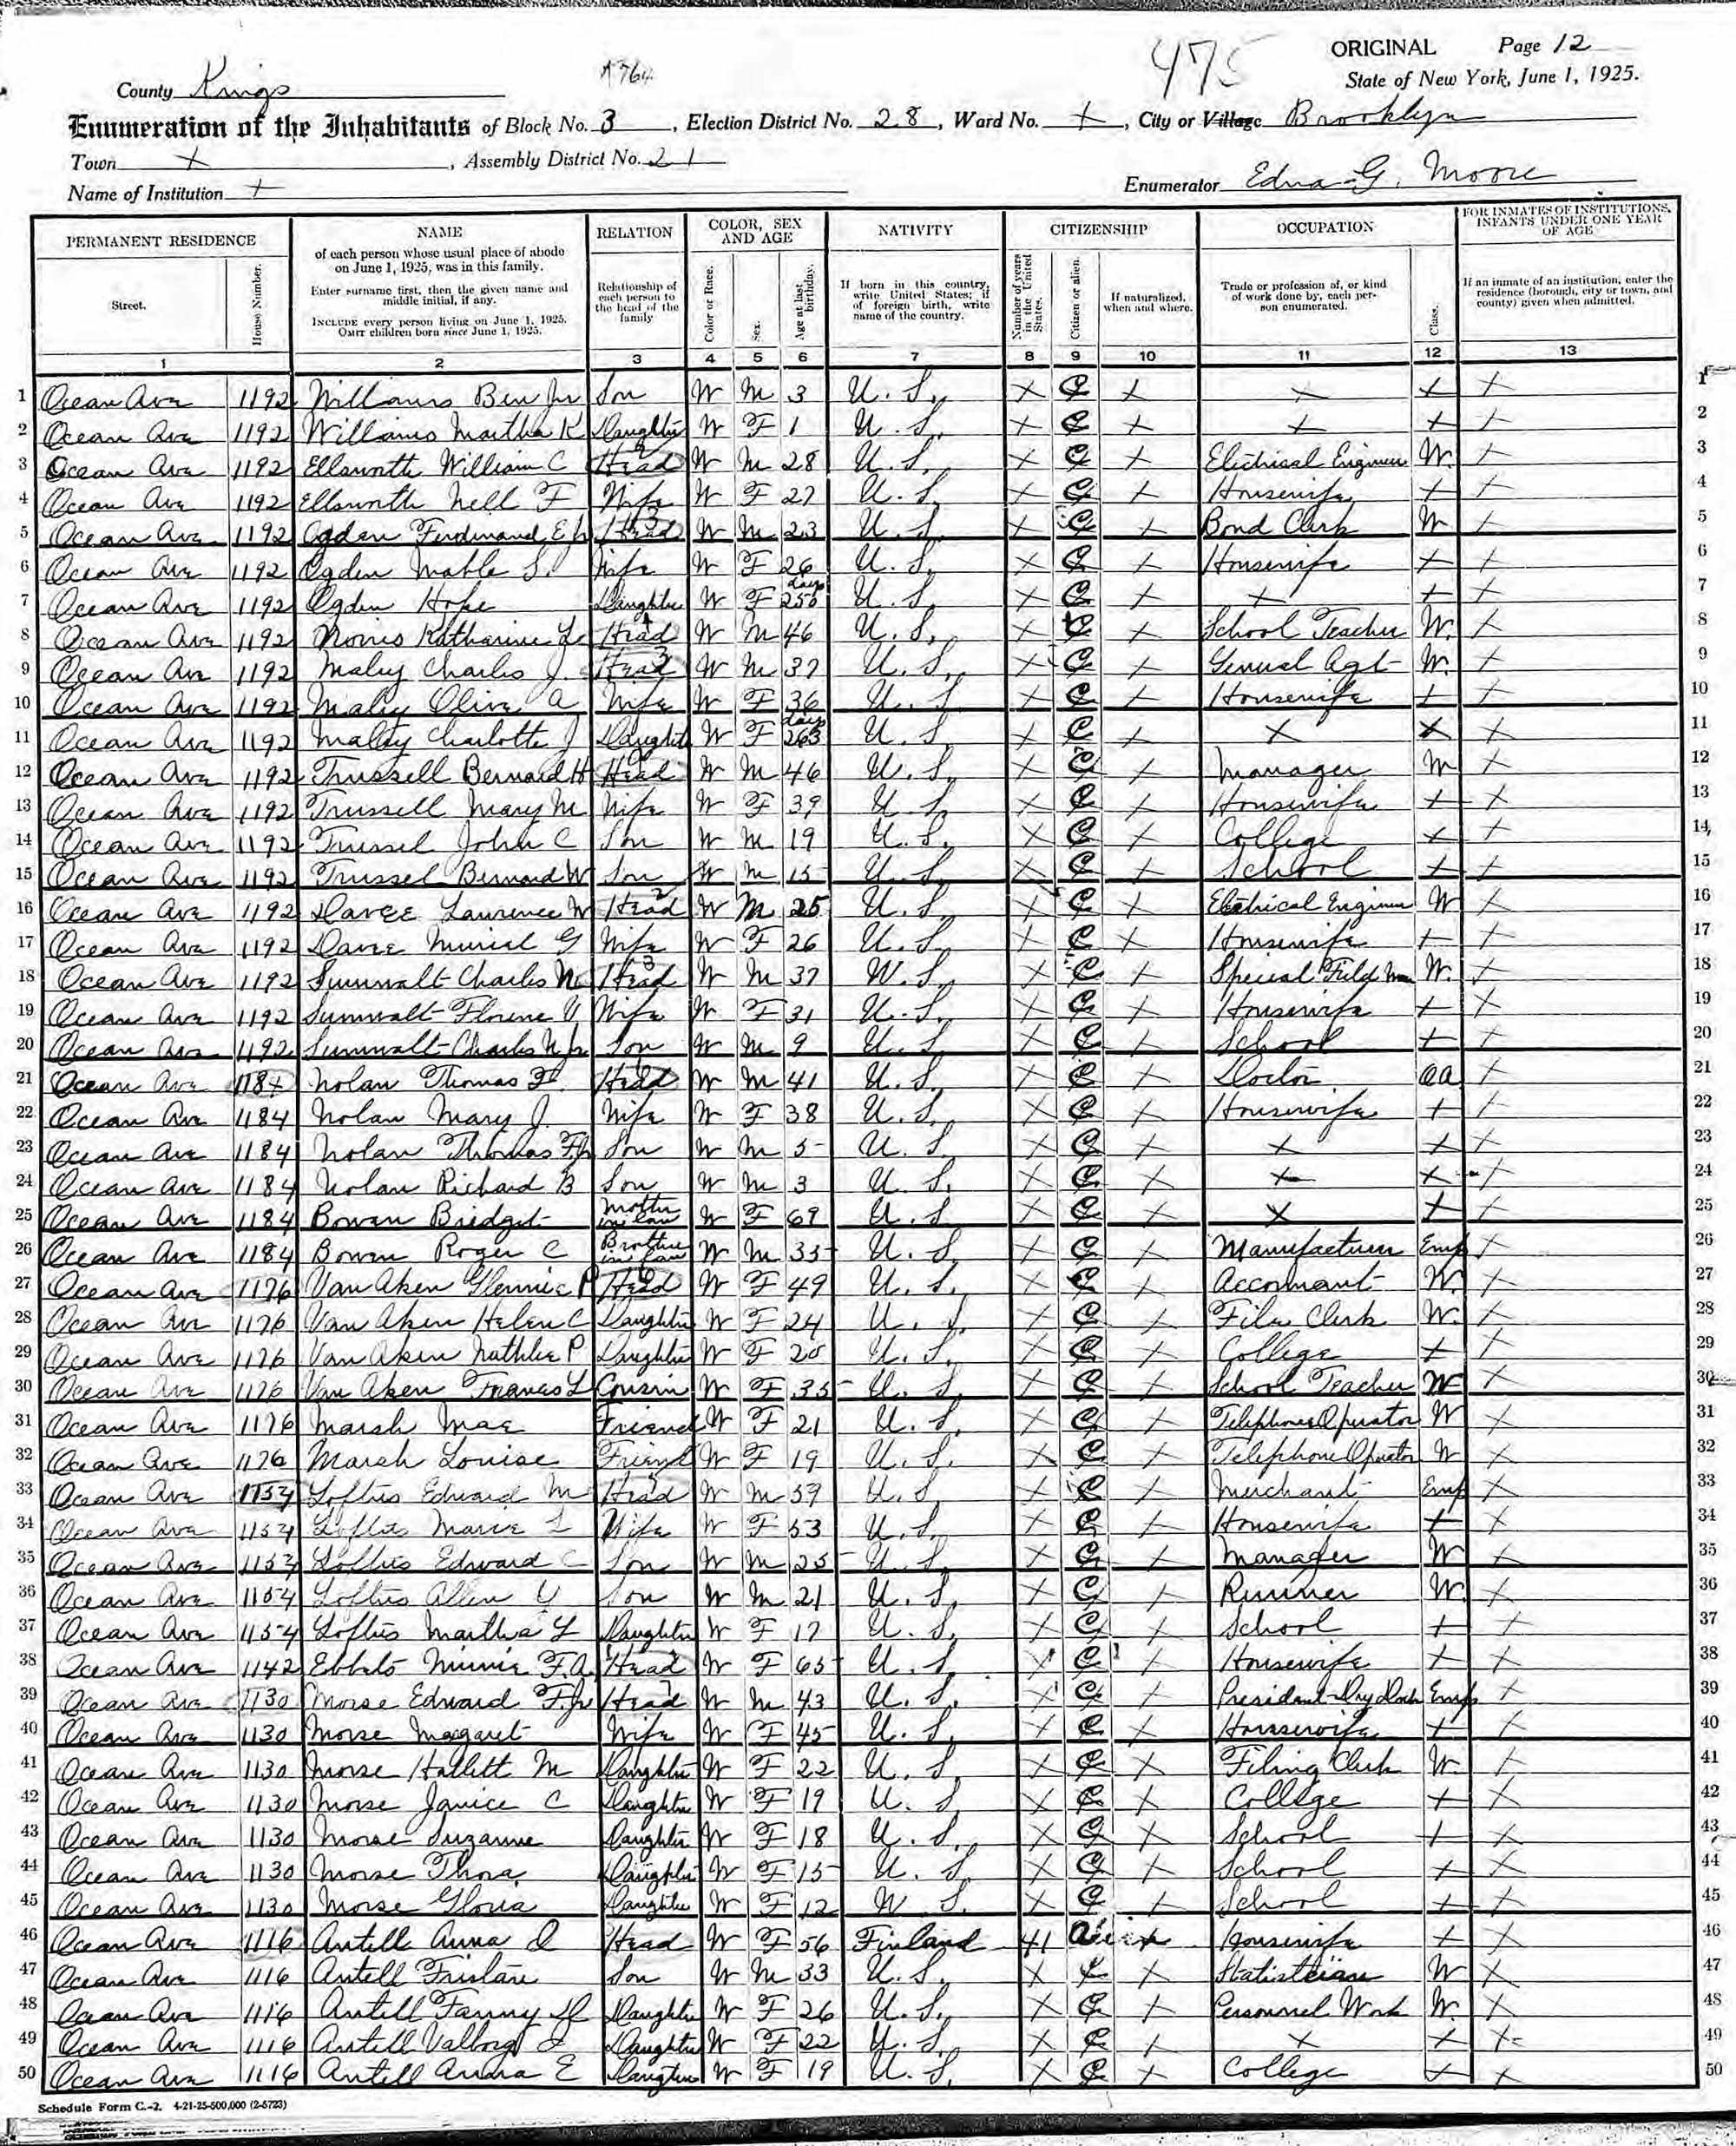 ORIGINAL Page 12
475
A764
State of New York, June 1, 1925.
County Kings
Enumeration of the Inhabitants of Block No. 3, Election District No. 28, Ward No. +, City or Village Brooklyn
Town +, Assembly District No. 21
Name of Institution +
Enumerator Edna G. Moore
PERMANENT RESIDENCE NAME RELATION COLOR, SEX AND AGE NATIVITY CITIZENSHIP OCCUPATION FOR INMATES OF INSTITUTIONS, INFANTS UNDER ONE YEAR OF AGE
Street. House Number. of each person whose usual place of abode on June 1, 1925, was in this family. Enter surname first, then the given name and middle initial, if any. INCLUDE every person living on June 1, 1925. OMIT children born since June 1, 1925. Relationship of each person to the head of the family Color or Race. Sex. Age at last birthday. If born in this country, write United States; if of foreign birth, write name of the country. Number of years in the United States. Citizen or alien. If naturalized, when and where. Trade or profession of, or kind of work done by, each person enumerated. Class. If an inmate of an institution, enter the residence (borough, city or town, and county) given when admitted.
1 2 3 4 5 6 7 8 9 10 11 12 13
1 Ocean Ave 1192 Williams Ben Jr Son W M 3 U. S. X C X X X X 1
2 Ocean Ave 1192 Williams Martha K Daughter W F 1 U. S. X C X X X X 2
3 Ocean Ave 1192 Ellsworth William C Head W M 28 U. S. X C X Electrical Engineer W. X 3
4 Ocean Ave 1192 Ellsworth Nell F Wife W F 27 U. S. X C X Housewife X X 4
5 Ocean Ave 1192 Ogden Ferdinand E Jr Head W M 23 U. S. X C X Bond Clerk W X 5
6 Ocean Ave 1192 Ogden Mable S. Wife W F 26 U. S. X C X Housewife X X 6
7 Ocean Ave 1192 Ogden Hope Daughter W F days U. S. X C X X X X 7
8 Ocean Ave 1192 Norris Katharine L Head W M 46 U. S. X C X School Teacher W. X 8
9 Ocean Ave 1192 Maley Charles J. Head W M 37 U. S. X C X General Agt W. X 9
10 Ocean Ave 1192 Maley Olive A Wife W F 36 U. S. X C X Housewife X X 10
11 Ocean Ave 1192 Maley Charlotte J Daughter W F days 263 U. S. X C X X X X 11
12 Ocean Ave 1192 Trussell Bernard H Head W M 46 U. S. X C X Manager W X 12
13 Ocean Ave 1192 Trussell Mary M Wife W F 39 U. S. X C X Housewife X X 13
14 Ocean Ave 1192 Trussel John C Son W M 19 U. S. X C X College X X 14
15 Ocean Ave 1192 Trussel Bernard W Son W M 15 U. S. X C X School X X 15
16 Ocean Ave 1192 Davee Laurence W Head W M 25 U. S. X C X Electrical Engineer W X 16
17 Ocean Ave 1192 Davee Muriel G Wife W F 26 U. S. X C X Housewife X X 17
18 Ocean Ave 1192 Sumwalt Charles N Head W M 37 U. S. X C X Special Field Man W. X 18
19 Ocean Ave 1192 Sumwalt Florine V Wife W F 31 U. S. X C X Housewife X X 19
20 Ocean Ave 1192 Sumwalt Charles N Jr Son W M 9 U. S. X C X School X X 20
21 Ocean Ave 1184 Nolan Thomas F. Head W M 41 U. S. X C X Doctor Oa X 21
22 Ocean Ave 1184 Nolan Mary J. Wife W F 38 U. S. X C X Housewife X X 22
23 Ocean Ave 1184 Nolan Thomas F Jr Son W M 5 U. S. X C X X X X 23
24 Ocean Ave 1184 Nolan Richard B Son W M 3 U. S. X C X X X X 24
25 Ocean Ave 1184 Bowen Bridget Mother in law W F 69 U. S. X C X X X X 25
26 Ocean Ave 1184 Bowen Roger C Brother in law W M 35 U. S. X C X Manufacturer Emp X 26
27 Ocean Ave 1176 Van Aken Glennie P Head W F 49 U. S. X C X Accountant W. X 27
28 Ocean Ave 1176 Van Aken Helen C Daughter W F 24 U. S. X C X File Clerk W. X 28
29 Ocean Ave 1176 Van Aken Nathlee P Daughter W F 20 U. S. X C X College X X 29
30 Ocean Ave 1176 Van Aken Frances L Cousin W F 35 U. S. X C X School Teacher W X 30
31 Ocean Ave 1176 Marsh Mae Friend W F 21 U. S. X C X Telephone Operator W X 31
32 Ocean Ave 1176 Marsh Louise Friend W F 19 U. S. X C X Telephone Operator W X 32
33 Ocean Ave 1154 Loftus Edward M Head W M 59 U. S. X C X Merchant Emp X 33
34 Ocean Ave 1154 Loftus Marie L Wife W F 53 U. S. X C X Housewife X X 34
35 Ocean Ave 1154 Loftus Edward C Son W M 25 U. S. X C X Manager W X 35
36 Ocean Ave 1154 Loftus Allen Y Son W M 21 U. S. X C X Runner W. X 36
37 Ocean Ave 1154 Loftus Martha L Daughter W F 17 U. S. X C X School X X 37
38 Ocean Ave 1142 Ebbets Minnie F.A. Head W F 65 U. S. X C X Housewife X X 38
39 Ocean Ave 1130 Morse Edward F. Jr Head W M 43 U. S. X C X President Dry Dock Emp X 39
40 Ocean Ave 1130 Morse Margaret Wife W F 45 U. S. X C X Housewife X X 40
41 Ocean Ave 1130 Morse Hallett M Daughter W F 22 U. S. X C X Filing Clerk W. X 41
42 Ocean Ave 1130 Morse Janice C Daughter W F 19 U. S. X C X College X X 42
43 Ocean Ave 1130 Morse Suzanne Daughter W F 18 U. S. X C X School X X 43
44 Ocean Ave 1130 Morse Thora Daughter W F 15 U. S. X C X School X X 44
45 Ocean Ave 1130 Morse Gloria Daughter W F 12 U. S. X C X School X X 45
46 Ocean Ave 1116 Antell Anna O Head W F 56 Finland 41 Alien X Housewife X X 46
47 Ocean Ave 1116 Antell Fristare Son W M 33 U. S. X C X Statistician W X 47
48 Ocean Ave 1116 Antell Fanny Daughter W F 26 U. S. X C X Personnel Work W. X 48
49 Ocean Ave 1116 Antell Valborg Daughter W F 22 U. S. X C X X X X 49
50 Ocean Ave 1116 Antell Anna E Daughter W F 19 U. S. X C X College X X 50
Schedule Form C.-2. 4-21-25-500,000 (2-5723)